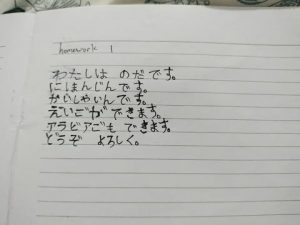 homework 1
わたしは のだです。
にほんじんです。
かいしゃいんです。
えいごができます。
アラビアごも できます。
どうぞ よろしく。